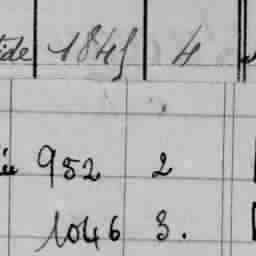 tide 1845 4
952 2
1046 3.